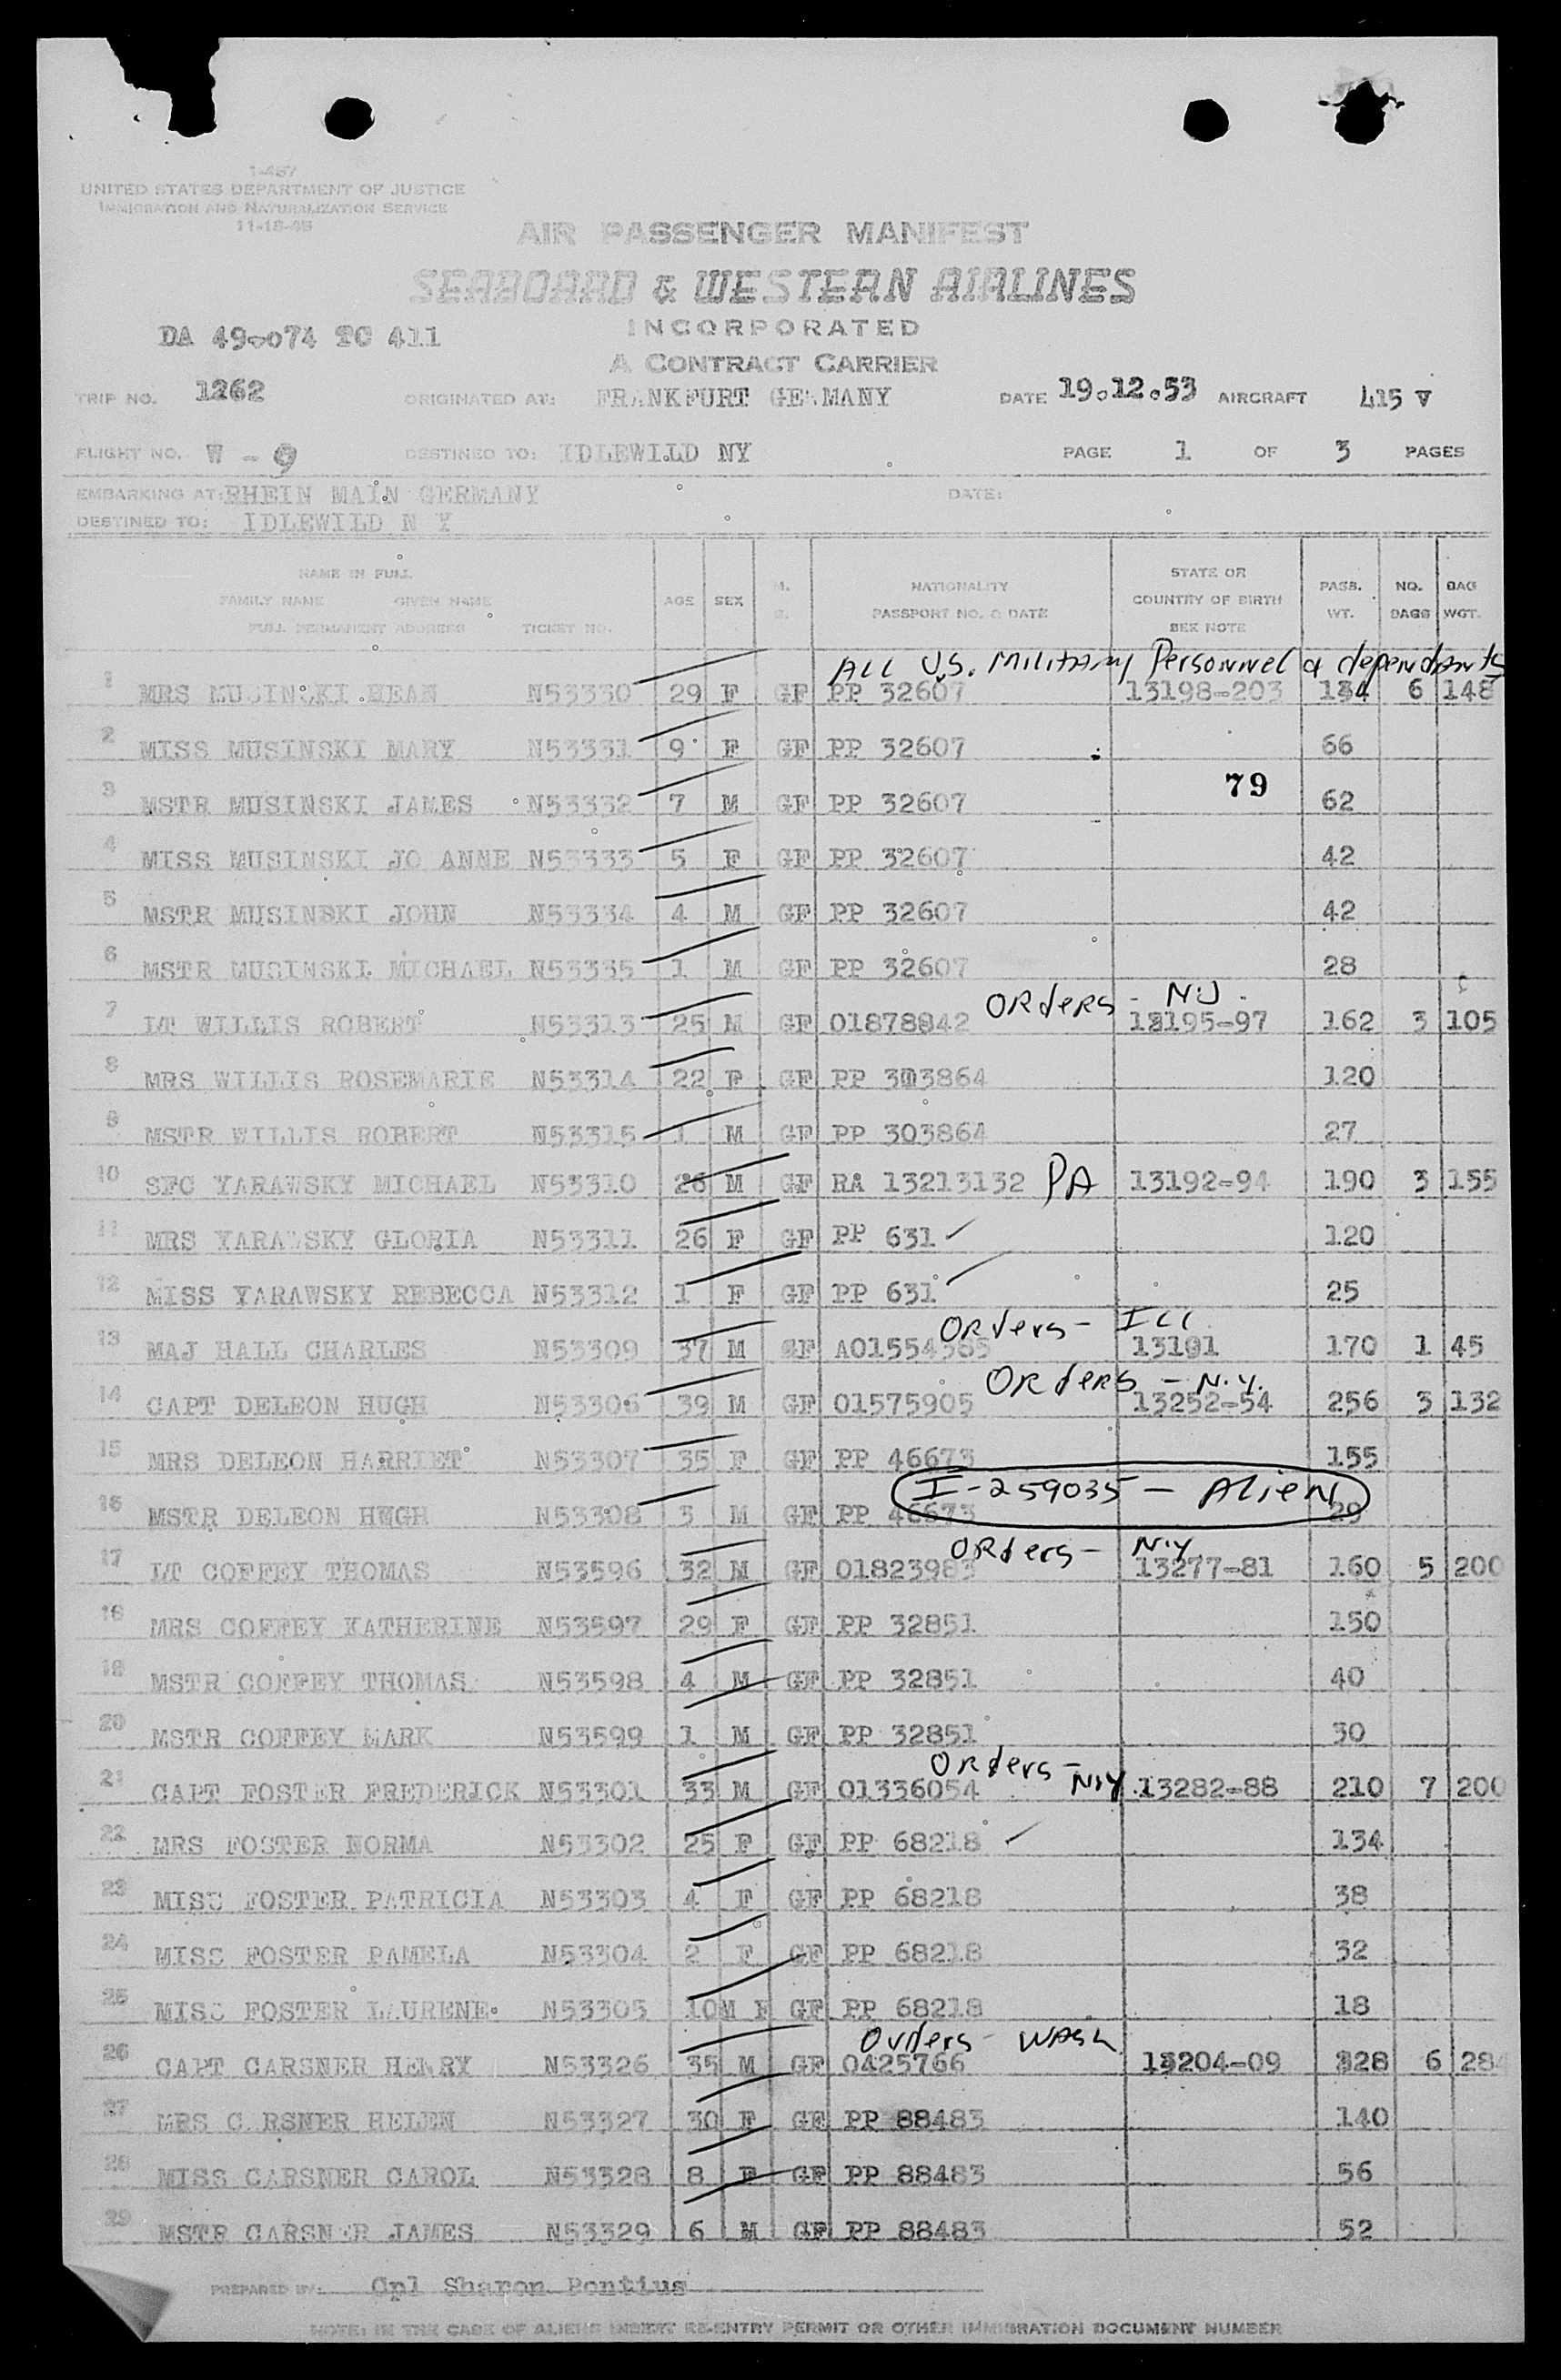 I-467
UNITED STATES DEPARTMENT OF JUSTICE
IMMIGRATION AND NATURALIZATION SERVICE
11-18-48
AIR PASSENGER MANIFEST
SEABOARD & WESTERN AIRLINES
INCORPORATED
DA 49-074 TC 411
A CONTRACT CARRIER
TRIP NO. 1262 ORIGINATED AT: FRANKFURT GERMANY DATE 19.12.53 AIRCRAFT 415 V
FLIGHT NO. W - 9 DESTINED TO: IDLEWILD NY PAGE 1 OF 3 PAGES
EMBARKING AT: RHEIN MAIN GERMANY DATE:
DESTINED TO: IDLEWILD N Y
NAME IN FULL
FAMILY NAME GIVEN NAME
FULL PERMANENT ADDRESS TICKET NO. AGE SEX NATIONALITY PASSPORT NO. & DATE STATE OR COUNTRY OF BIRTH SEE NOTE PASS. WT. NO. BAGS BAG WGT.
ALL U.S. Military Personnel & dependants
1 MRS MUSINSKI HEAN N53330 29 F GF PP 32607 13198-203 134 6 148
2 MISS MUSINSKI MARY N53331 9 F GF PP 32607 66
79
3 MSTR MUSINSKI JAMES N53332 7 M GF PP 32607 62
4 MISS MUSINSKI JO ANNE N53333 5 F GF PP 32607 42
5 MSTR MUSINSKI JOHN N53334 4 M GF PP 32607 42
6 MSTR MUSINSKI MICHAEL N53335 1 M GF PP 32607 28
Orders - N.J.
7 LT WILLIS ROBERT N53313 25 M GF 01878842 13195-97 162 3 105
8 MRS WILLIS ROSEMARIE N53314 22 F GF PP 303864 120
9 MSTR WILLIS ROBERT N53315 1 M GF PP 303864 27
10 SFC YARAWSKY MICHAEL N53310 26 M GF RA 13213132 PA 13192-94 190 3 155
11 MRS YARAWSKY GLORIA N53311 26 F GF PP 631 120
12 MISS YARAWSKY REBECCA N53312 1 F GF PP 631 25
Orders - Ill
13 MAJ HALL CHARLES N53309 37 M GF AO1554385 13191 170 1 45
Orders - N.Y.
14 CAPT DELEON HUGH N53306 39 M GF 01575905 13252-54 256 3 132
15 MRS DELEON HARRIET N53307 35 F GF PP 46673 155
I-259035 - Alien
16 MSTR DELEON HUGH N53308 3 M GF PP 46673 29
Orders - N.Y
17 LT COFFEY THOMAS N53596 32 M GF 01823983 13277-81 160 5 200
18 MRS COFFEY KATHERINE N53597 29 F GF PP 32851 150
19 MSTR COFFEY THOMAS N53598 4 M GF PP 32851 40
20 MSTR COFFEY MARK N53599 1 M GF PP 32851 30
Orders - N.Y.
21 CAPT FOSTER FREDERICK N53301 33 M GF 01336054 13282-88 210 7 200
22 MRS FOSTER NORMA N53302 25 F GF PP 68218 134
23 MISS FOSTER PATRICIA N53303 4 F GF PP 68218 38
24 MISS FOSTER PAMELA N53304 2 F GF PP 68218 32
25 MISS FOSTER LAURENE N53305 10M F GF PP 68218 18
Orders - Wash
26 CAPT CARSNER HENRY N53326 35 M GF 0425766 13204-09 228 6 284
27 MRS CARSNER HELEN N53327 30 F GF PP 88483 140
28 MISS CARSNER CAROL N53328 8 F GF PP 88483 56
29 MSTR CARSNER JAMES N53329 6 M GF PP 88483 52
PREPARED BY: Cpl Sharon Pontius
NOTE: IN THE CASE OF ALIENS INSERT RE-ENTRY PERMIT OR OTHER IMMIGRATION DOCUMENT NUMBER